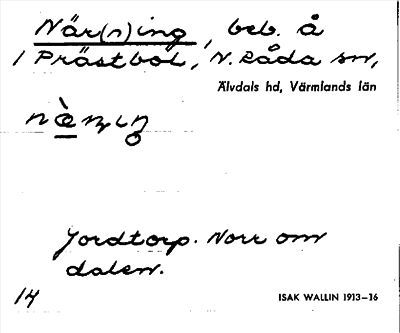 När(n)ing, beb. å
1 Prästbol, N. Råda sn,
Älvdals hd, Värmlands län
Jordtorp. Norr om
dalen.
14
ISAK WALLIN 1913–16